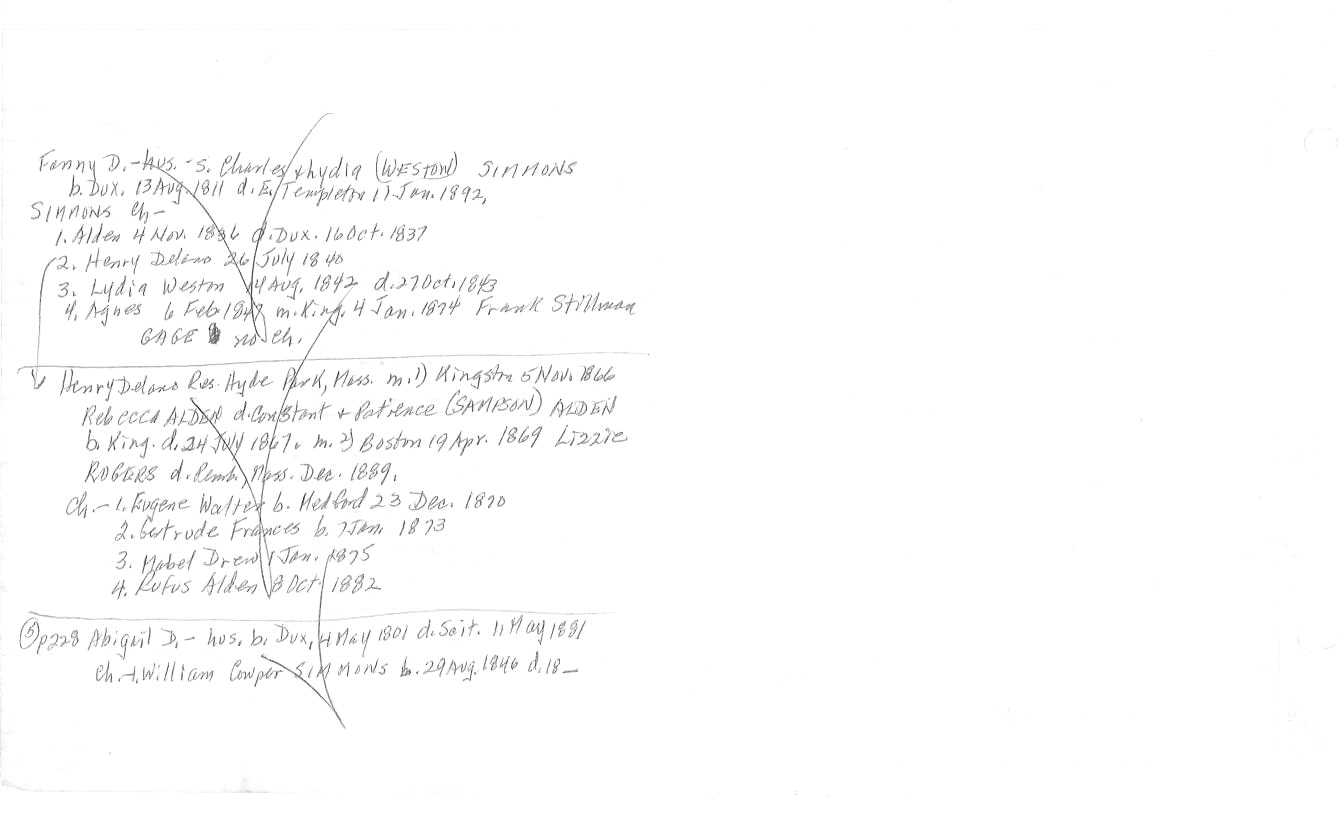 Fanny D. - hus. - s. Charles & Lydia (WESTON) SIMMONS
b. Dux. 13 Aug. 1811 d. E. Templeton 11 Jan. 1892.
SIMMONS Ch -
1. Alden 4 Nov. 1836 d. Dux. 16 Oct. 1837
2. Henry Delano 26 July 1840
3. Lydia Weston 14 Aug. 1842 d. 27 Oct. 1843
4. Agnes 6 Feb. 1847 m. King. 4 Jan. 1874 Frank Stillman
GAGE no ch.
Henry Delano Res. Hyde Park, Mass. m. 1) Kingston 5 Nov. 1866
Rebecca ALDEN d. Constant & Patience (SAMPSON) ALDEN
b. King. d. 24 July 1867. m. 2) Boston 19 Apr. 1869 Lizzie
ROGERS d. Pemb. Mass. Dec. 1889.
Ch. - 1. Eugene Walter b. Medford 23 Dec. 1870
2. Gertrude Frances b. 7 Jan. 1873
3. Mabel Drew 1 Jan. 1875
4. Rufus Alden 8 Oct. 1882
5 p228 Abigail D. - hus. b. Dux, 4 May 1801 d. Scit. 11 May 1881
Ch. - 1. William Cowper SIMMONS b. 29 Aug. 1846 d. 18_